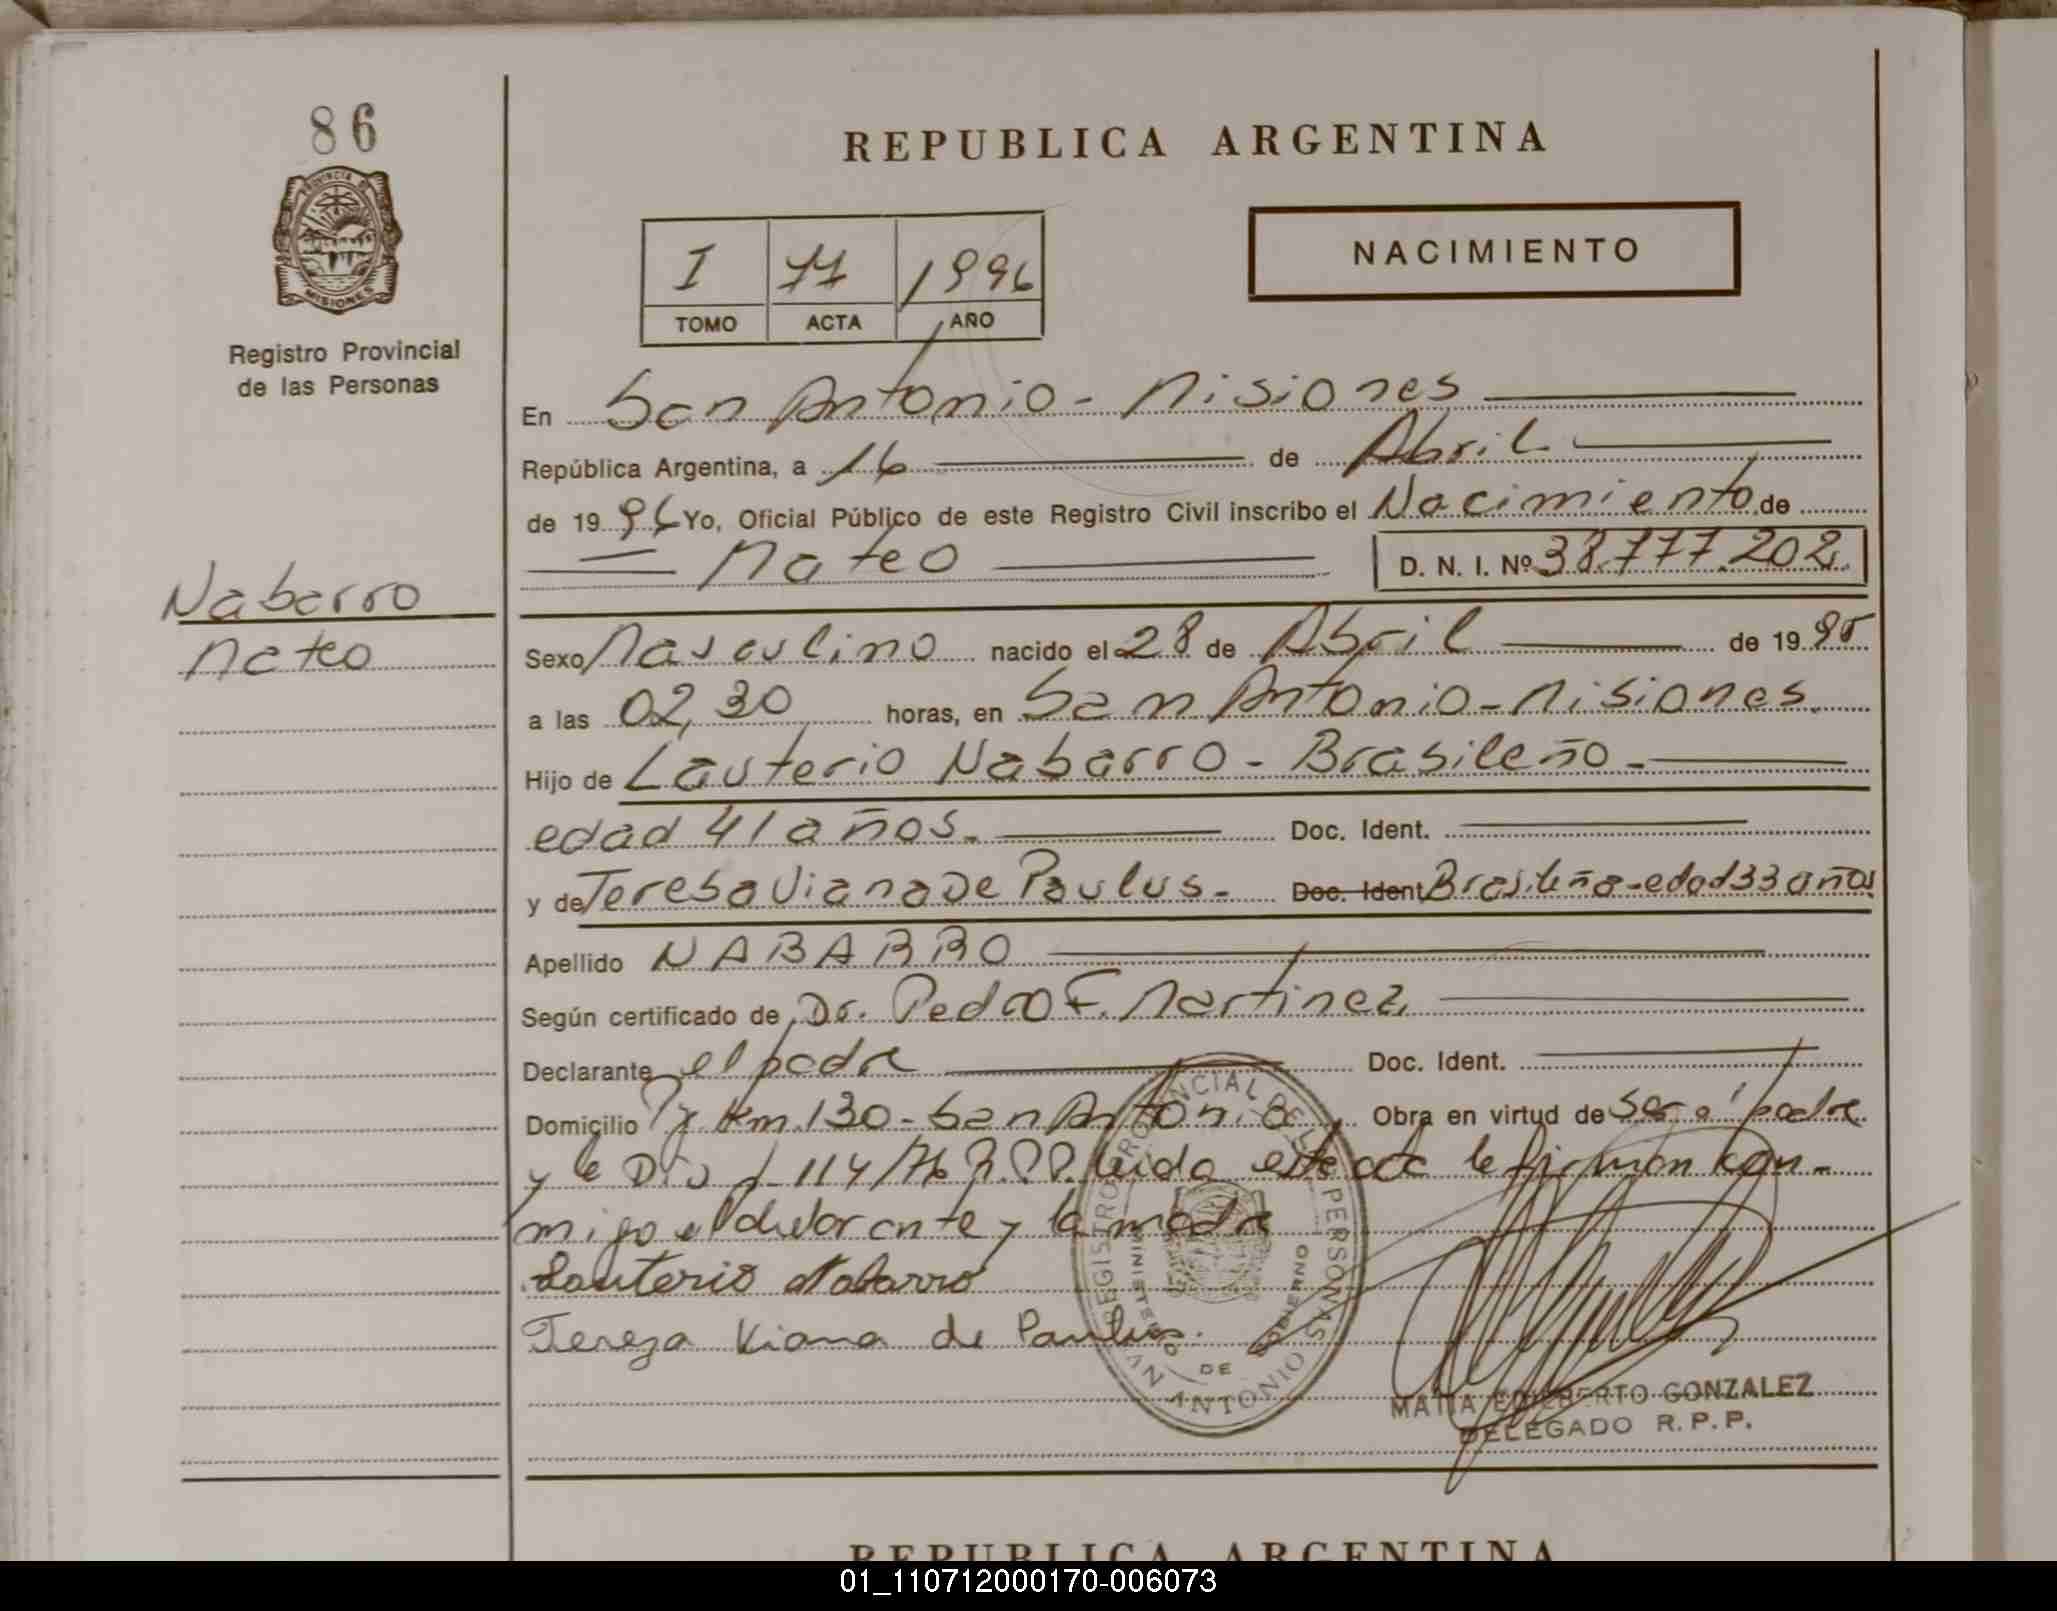 86
PROVINCIA DE
MISIONES
Registro Provincial
de las Personas
Nabarro
Mateo
REPUBLICA ARGENTINA
NACIMIENTO
I 77 1996
TOMO ACTA AÑO
En San Antonio - Misiones
República Argentina, a 16 de Abril
de 1996 Yo, Oficial Público de este Registro Civil inscribo el Nacimiento de
Mateo D. N. I. Nº 38.777.202.
Sexo Masculino nacido el 28 de Abril de 1995
a las 02,30 horas, en San Antonio - Misiones.
Hijo de Lauterio Nabarro - Brasileño -
edad 41 años. Doc. Ident.
y de Teresa Viana De Paulus - Doc. Ident Brasileña - edad 33 años
Apellido NABARRO
Según certificado de Dr. Pedro F. Martinez
Declarante el padre Doc. Ident.
Domicilio Km. 130 - San Antonio Obra en virtud de ser el padre
y 114/76 R.P.P. leida este acta le firman con-
migo el declarante y la madre
Lauterio Nabarro
Tereza Viana de Paulus.
REGISTRO PROVINCIAL DE LAS PERSONAS
MINISTERIO DE GOBIERNO
SAN ANTONIO
MATIA EDILBERTO GONZALEZ
DELEGADO R.P.P.
REPUBLICA ARGENTINA
01_110712000170-006073